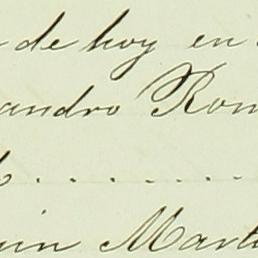 de hoy en
andro Rom
. . . . . . . .
uin Mart